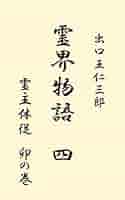 出口王仁三郎
霊界物語 四
霊主体従 卯の巻